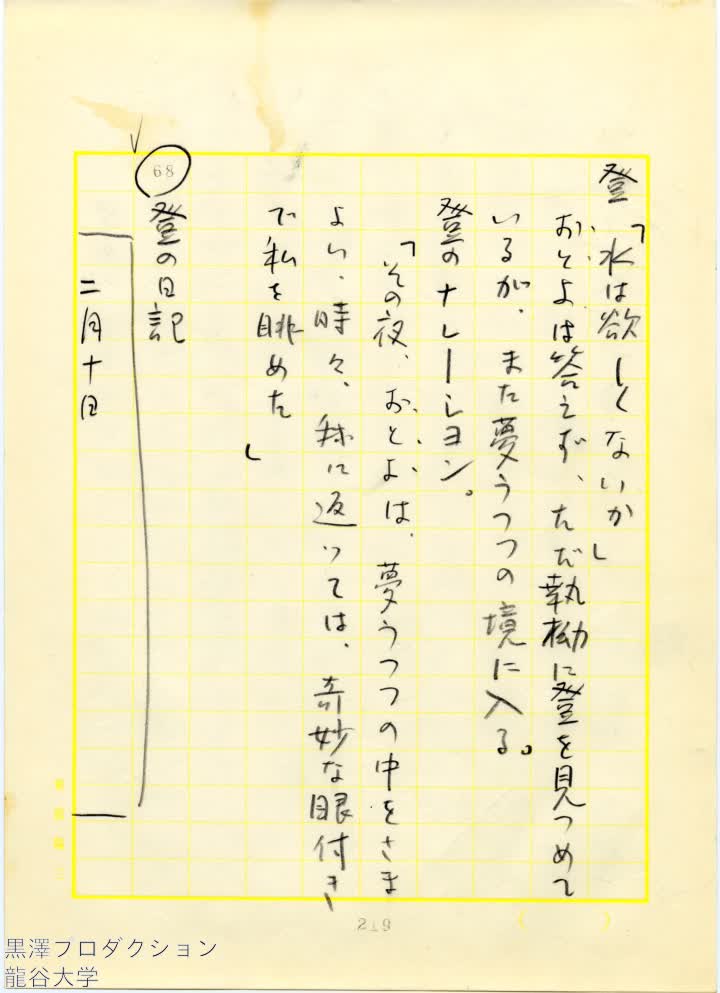 登「水は欲しくないか」
おとよは答えず、ただ執拗に登を見つめて
いるが、また夢うつつの境に入る。
登のナレーション。
「その夜、おとよは、夢うつつの中をさま
よい、時々、我に返っては、奇妙な眼付き
で私を眺めた」
68
登の日記
二月十日
219
黒澤プロダクション
龍谷大学